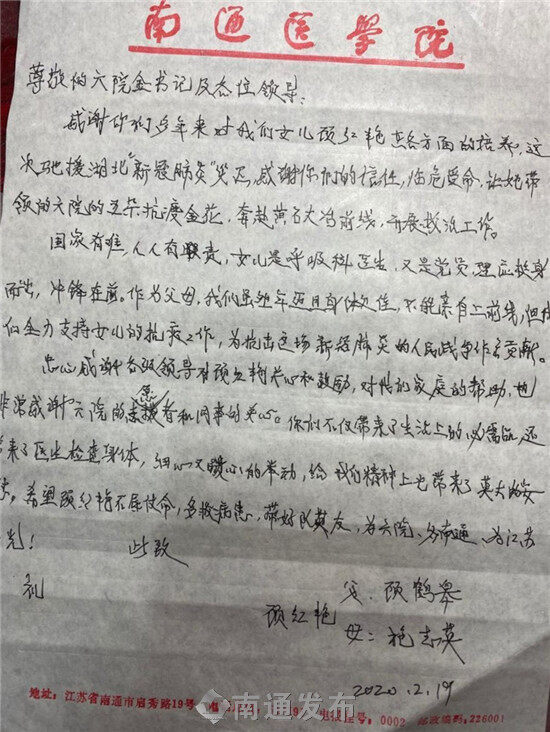 南通医学院
尊敬的六院金书记及各位领导：
感谢你们多年来对我们女儿顾红艳在各方面的培养，这
次驰援湖北“新冠肺炎”灾区，感谢你们的信任，临危受命，让她带
领的六院的五朵抗疫金花，奔赴黄石大冶前线，开展救治工作。
国家有难，人人有职责，女儿是呼吸科医生，又是党员，理应挺身
而出，冲锋在前。作为父母，我们虽然年迈且身体欠佳，不能亲自上前线，但
们全力支持女儿的抗疫工作，为抗击这场新冠肺炎的人民战争作贡献。
衷心感谢各级领导对顾红艳关心和鼓励，对我们家庭的帮助，也
非常感谢六院的志愿者和同事的关心。你们不仅带来了生活上的必需品，还
带来了医生检查身体，细心又暖心的举动，给我们精神上也带来了莫大的安
希望顾红艳不辱使命，多救病患，带好队友，为六院、为南通、为江苏
光！
此致
礼
顾红艳
父：顾鹤皋
母：施志英
2020.2.19
地址：江苏省南通市启秀路19号
电报挂号：0002 邮政编码：226001
南通发布